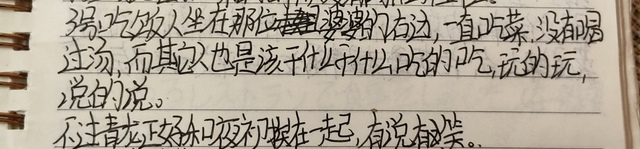 3号吃饭人坐在那位婆婆的右边,一直吃菜,没有喝
过汤,而其它人也是该干什么干什么,吃的吃,玩的玩,
说的说。
不过青龙正好和夜初挨在一起,有说有笑。